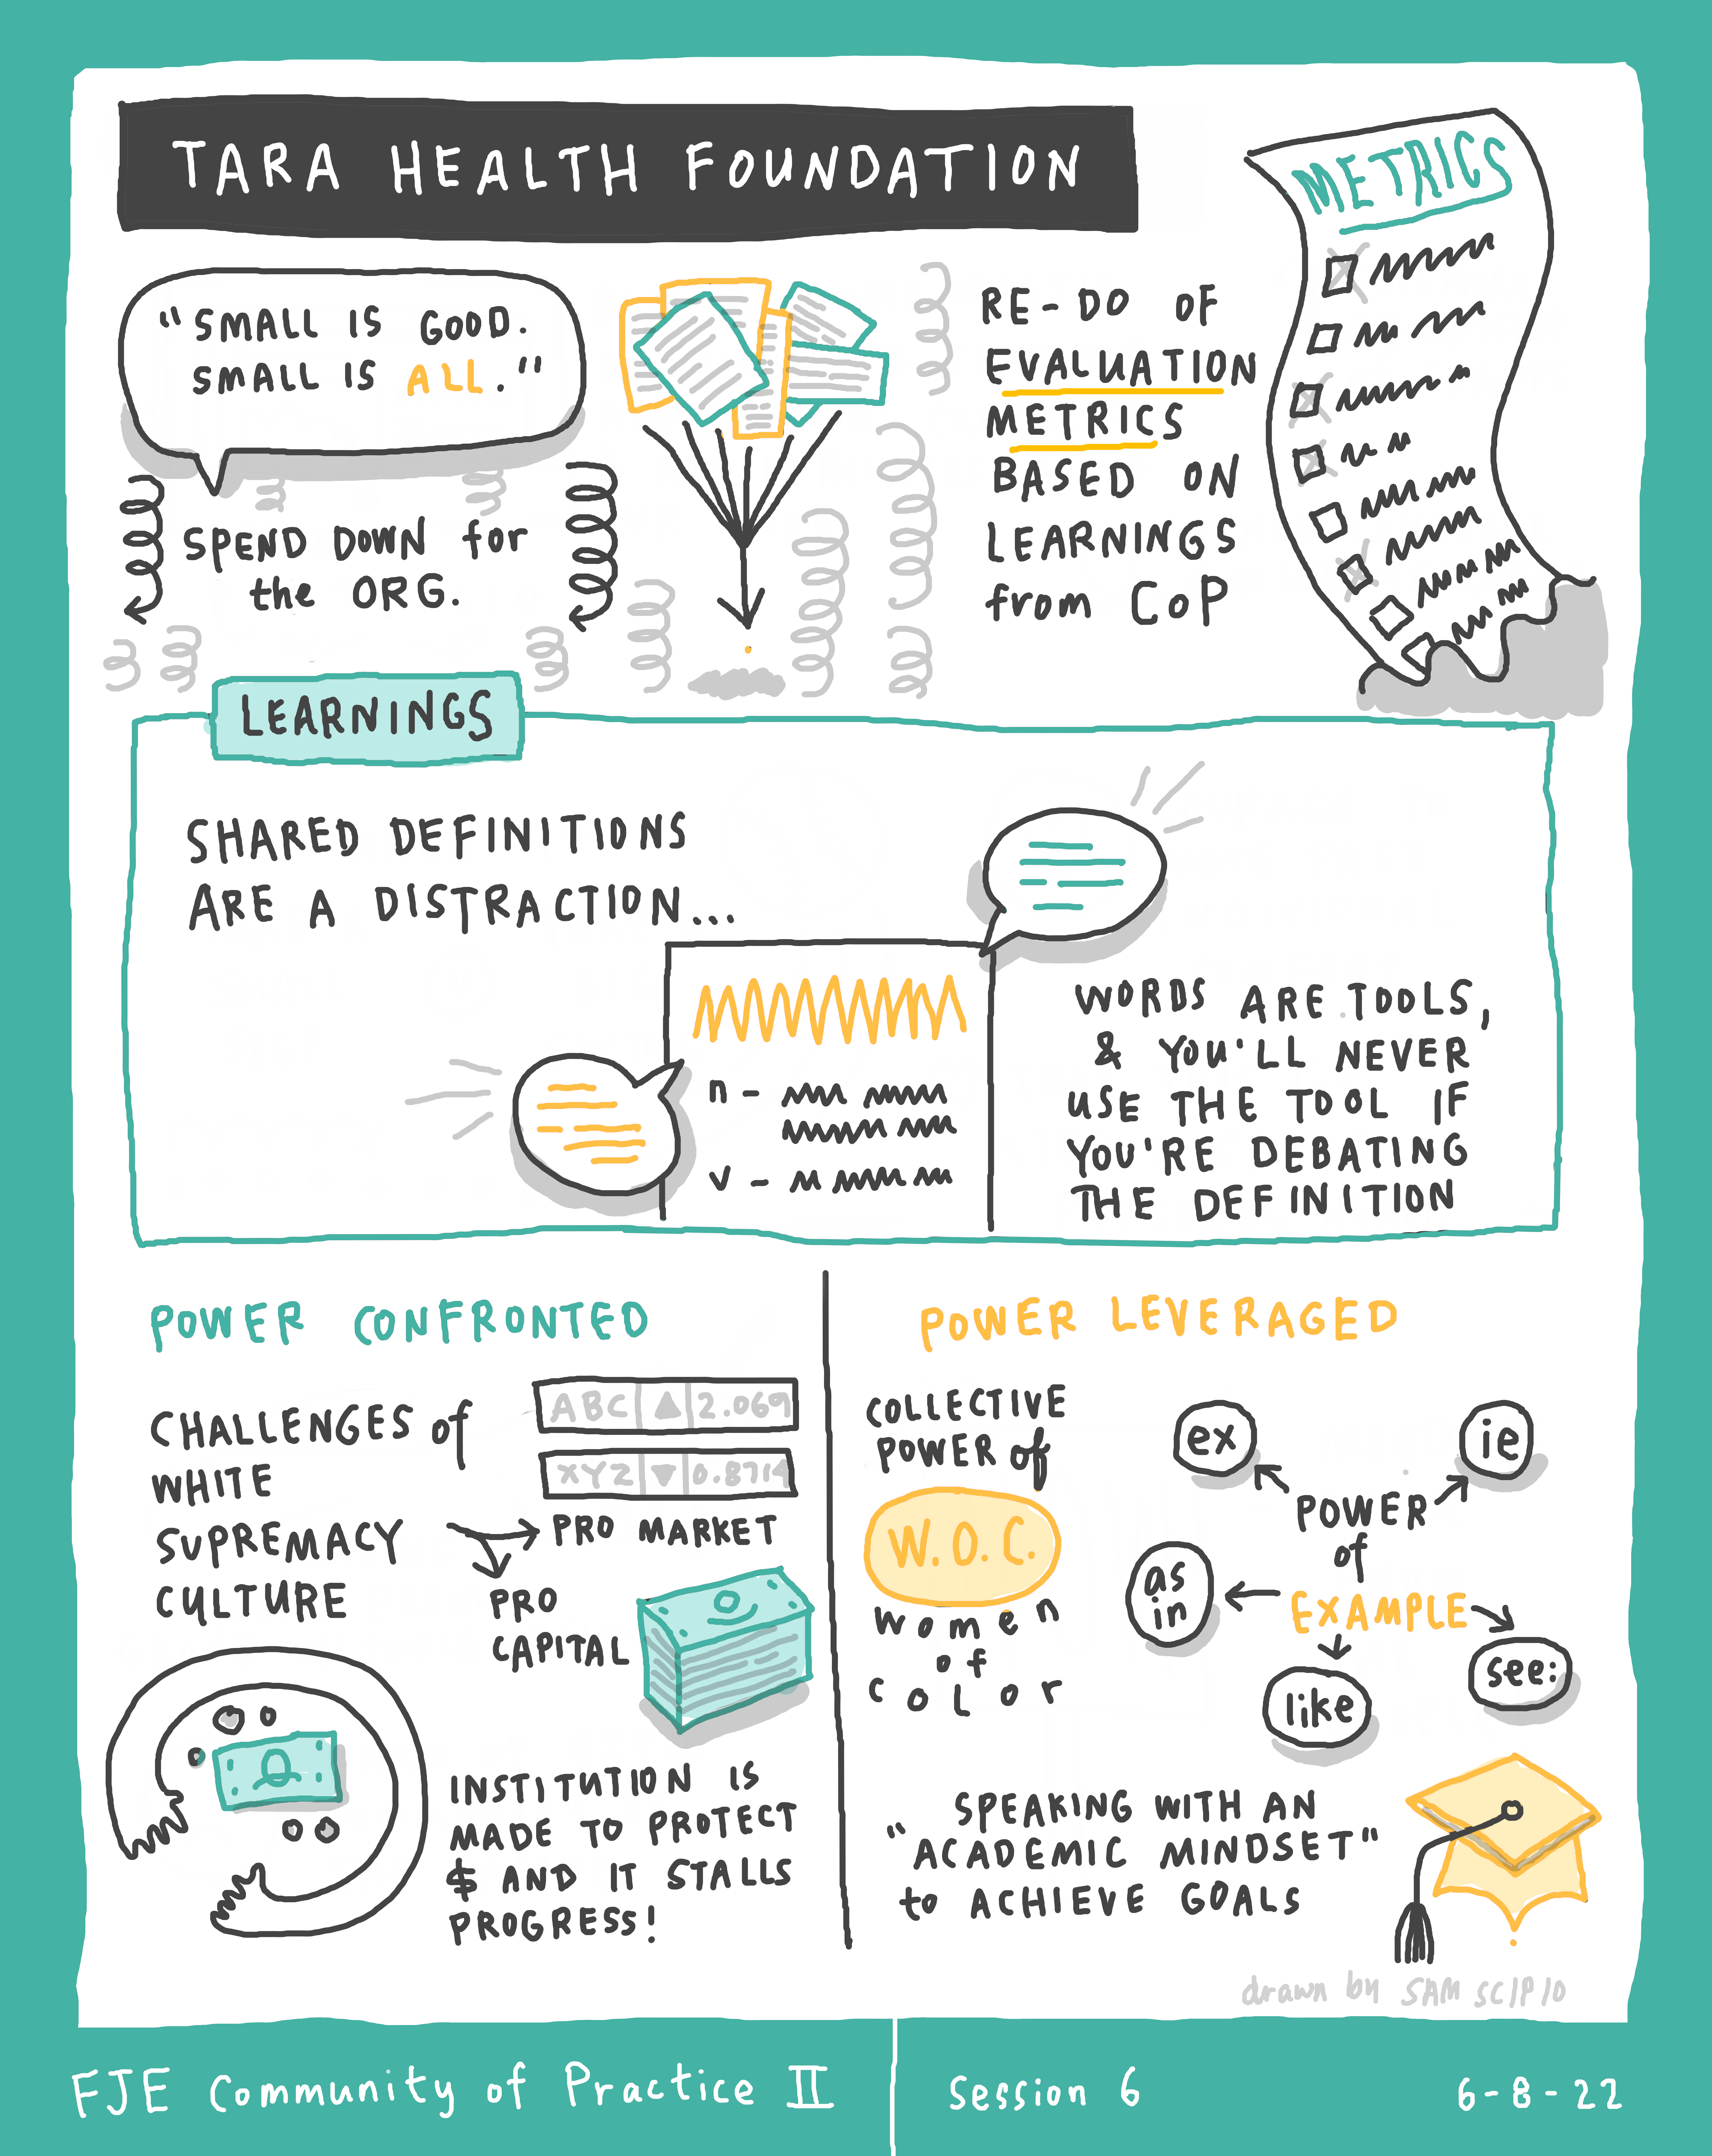 TARA HEALTH FOUNDATION
METRICS
"SMALL IS GOOD.
SMALL IS ALL."
SPEND DOWN for
the ORG.
RE-DO OF
EVALUATION
METRICS
BASED ON
LEARNINGS
from CoP
LEARNINGS
SHARED DEFINITIONS
ARE A DISTRACTION...
n -
v -
WORDS ARE TOOLS,
& YOU'LL NEVER
USE THE TOOL IF
YOU'RE DEBATING
THE DEFINITION
POWER CONFRONTED
CHALLENGES of
WHITE
SUPREMACY
CULTURE
ABC ▲ 2.069
XYZ ▼ 0.8714
PRO MARKET
PRO
CAPITAL
INSTITUTION IS
MADE TO PROTECT
$ AND IT STALLS
PROGRESS!
POWER LEVERAGED
COLLECTIVE
POWER of
W.O.C.
women
of
color
ex
ie
POWER
of
EXAMPLE
as
in
like
see:
SPEAKING WITH AN
"ACADEMIC MINDSET"
to ACHIEVE GOALS
drawn by SAM SCIPIO
FJE Community of Practice II
Session 6
6-8-22